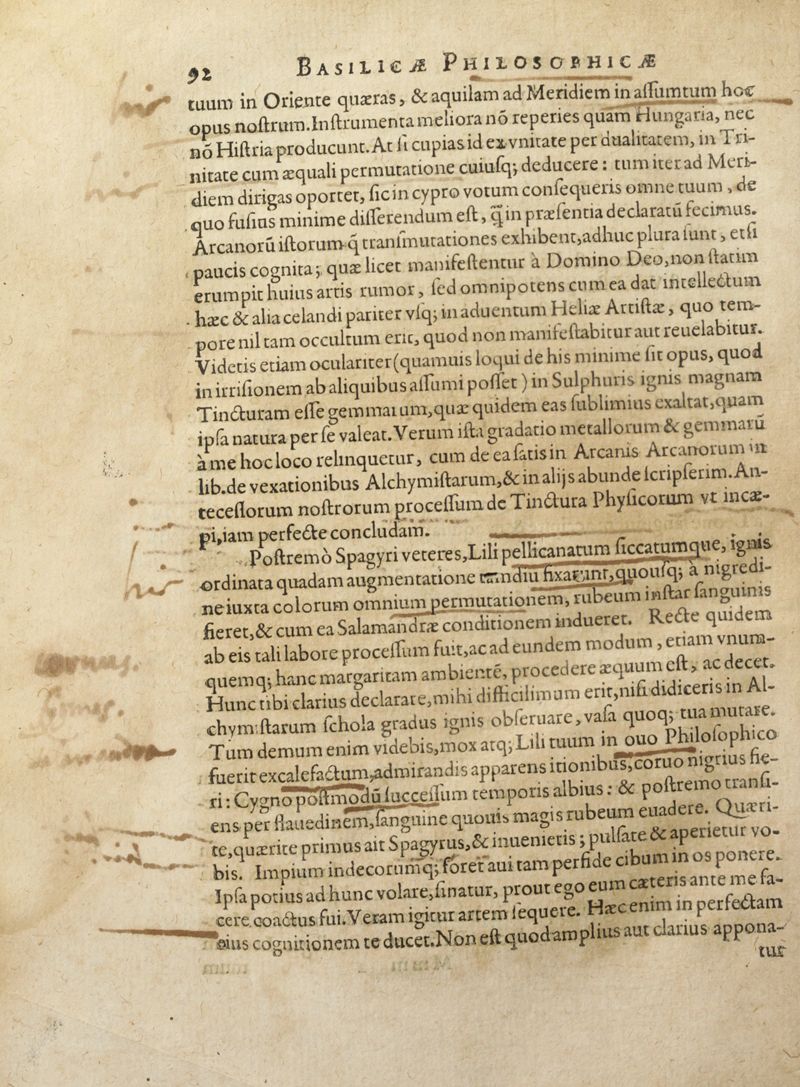 92 BASILICÆ PHILOSOPHICÆ
tuum in Oriente quæras, & aquilam ad Meridiem in aſſumtum hoc
opus noſtrum. Inſtrumenta meliora nō reperies quàm Hungaria, nec
nō Hiſtria producunt. At ſi cupias id ex vnitate per dualitatem, in Tri-
nitate cum æquali permutatione cuiuſq; deducere: tum iter ad Meri-
diem dirigas oportet, ſic in cypro votum conſequeris omne tuum, de
quo fuſius minime differendum eſt, q̃ in præſentia declaratū fecimus.
Arcanorū iſtorum q̃ tranſmutationes exhibent, adhuc plura ſunt, etſi
paucis cognita; quæ licet manifeſtentur à Domino Deo, non ſtatim
erumpit huius artis rumor, ſed omnipotens cum ea dat intellectum
hæc & alia celandi pariter vſq; in aduentum Heliæ Artiſtæ, quo tem-
pore nil tam occultum erit, quod non manifeſtabitur aut reuelabitur.
Videtis etiam oculariter (quamuis loqui de his minime ſit opus, quod
in irriſionem ab aliquibus aſſumi poſſet) in Sulphuris ignis magnam
Tincturam eſſe gemmarum, quæ quidem eas ſublimius exaltat, quam
ipſa natura per ſe valeat. Verum iſta gradatio metallorum & gemmarū
à me hoc loco relinquetur, cum de ea ſatis in Arcanis Arcanorum in
lib. de vexationibus Alchymiſtarum, & in alijs abunde ſcripſerim. An-
teceſſorum noſtrorum proceſſum de Tinctura Phyſicorum vt incæ-
pi, iam perfecte concludam.
Poſtremò Spagyri veteres, Lili pellicanatum ſiccatumque, ignis
ordinata quadam augmentatione tandiu fixarunt, quouſq; à nigredi-
ne iuxta colorum omnium permutationem, rubeum inſtar ſanguinis
fieret, & cum ea Salamandræ conditionem indueret. Recte quidem
ab eis tali labore proceſſum fuit, ac ad eundem modum, etiam vnum-
quemq; hanc margaritam ambientē, procedere æquum eſt, ac decet.
Hunc tibi clarius declarare, mihi difficilimum erit, niſi didiceris in Al-
chymiſtarum ſchola gradus ignis obſeruare, vaſa quoq; tua mutare.
Tum demum enim videbis, mox atq; Lili tuum in ouo Philoſophico
fuerit excalefactum, admirandis apparens itionibus, coruo nigrius fie-
ri: Cygno poſtmodū ſucceſſum temporis albius: & poſtremo tranſi-
ens per flauedinem, ſanguine quouis magis rubeum euadere. Quæri-
te, quærite primus ait Spagyrus, & inuenietis; pulſate & aperietur vo-
bis. Impium indecorumq; foret aui tam perfide cibum in os ponere.
Ipſa potius ad hunc volare, ſinatur, prout ego eum cæteris ante me fa-
cere coactus fui. Veram igitur artem ſequere. Hæc enim in perfectam
eius cognitionem te ducet. Non eſt quod amplius aut clarius appona-
tur